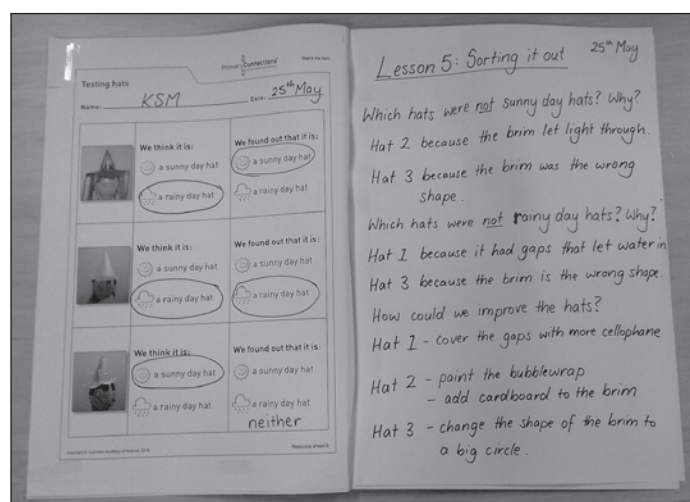 Primary Connections
Testing hats
Name: KSM Date: 25th May
We think it is:
a sunny day hat
a rainy day hat
We found out that it is:
a sunny day hat
a rainy day hat
We think it is:
a sunny day hat
a rainy day hat
We found out that it is:
a sunny day hat
a rainy day hat
We think it is:
a sunny day hat
a rainy day hat
We found out that it is:
a sunny day hat
a rainy day hat
neither
Lesson 5: Sorting it out
25th May
Which hats were not sunny day hats? Why?
Hat 2 because the brim let light through.
Hat 3 because the brim was the wrong
shape.
Which hats were not rainy day hats? Why?
Hat 1 because it had gaps that let water in
Hat 3 because the brim is the wrong shape.
How could we improve the hats?
Hat 1 - cover the gaps with more cellophane
Hat 2 - paint the bubblewrap
- add cardboard to the brim
Hat 3 - change the shape of the brim to
a big circle.